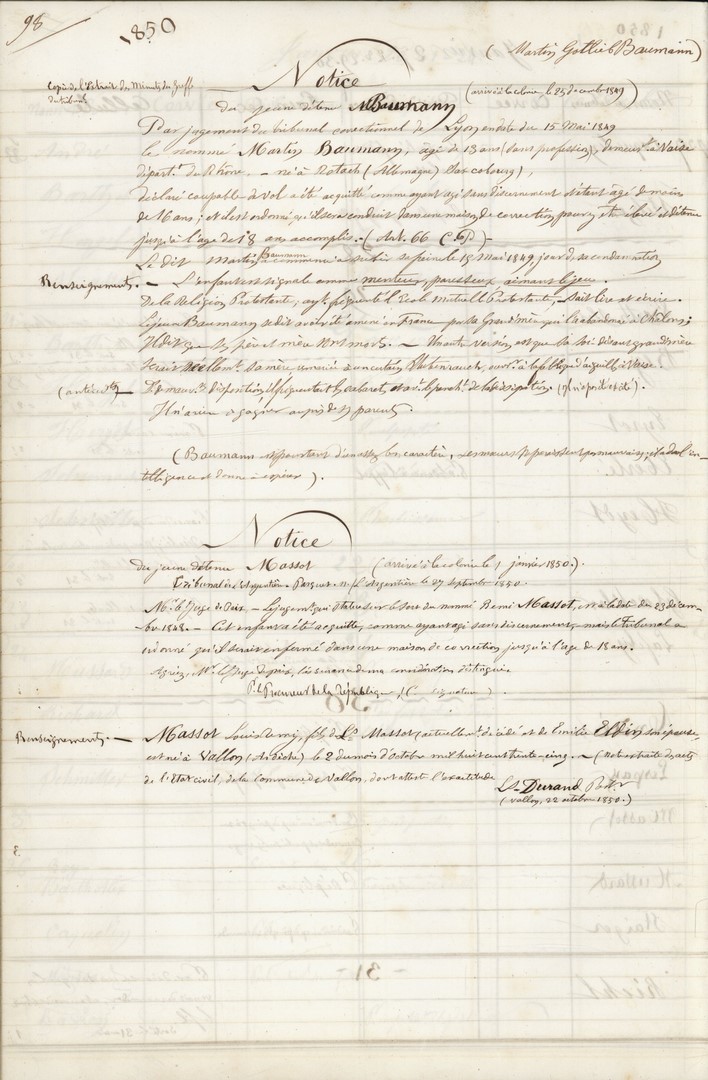 98
1850
(Martin Gotlieb Baumann)
Copie de l'Extrait des Minutes du Greffe
du tribunal
Notice
(arrivé à la colonie, le 25 décembre 1849)
du jeune détenu Baumann
Par jugement du tribunal correctionnel de Lyon en date du 15 Mai 1849
le nommé Martin Baumann, âgé de 13 ans (sans profession), demeurt à Vaise
départt de Rhône, – né à (Allemagne)
déclaré coupable de vol a été acquitté comme ayant agi sans discernement s'étant âgé de moins
de 16 ans; et il est ordonné qu'il sera conduit dans une maison de correction pour y être élevé et détenu
jusqu'à l'âge de 18 ans accomplis. – (Art. 66 C.P.) –
Le dit Martin Baumann a commencé à subir sa peine le 15 Mai 1849, jour de sa condamnation
Renseignements. – L'enfant est signalé comme menteur, paresseux aimant le jeu.
De la Religion Protestante, ayt fréquenté l'Ecole Mutuelle Protestante, – sait lire et écrire.
Le jeune Baumann se dit avoir été amené en France par sa Grand'mère qui l'a abandonné à Châlons;
Il dit que ses père et mère sont morts. – Une autre version, est que la soi-disant grand'mère
serait réellement sa mère, remariée à un certain , ouvr. à la fabrique d'aiguilles à Vaise.
De mauvses dispositions, il fréquentait les cabarets, et avait le pencht de la dissipation.
Il n'a rien à gagner auprès de ses parents.
(Baumann est pourtant d'un assez bon caractère, ses mœurs ne paraissent pas mauvaises; il a de l'in-
telligence et donne à espérer).
Notice
du jeune détenu Massot (arrivé à la colonie le 1 janvier 1850).
Tribunal de l'Argentière. Parquet. n. l'Argentière le 27 septembre 1850.
Mr. le Juge de Paix. – Le jugement qui statue sur le sort du nommé Remi Massot, est à la date du 23 décem-
bre 1848. – Cet enfant a été acquitté, comme ayant agi sans discernement, mais le tribunal a
ordonné qu'il serait enfermé dans une maison de correction jusqu'à l'âge de 18 ans.
Agréez, Mr. le Juge de paix, l'assurance de ma considération distinguée.
Pr. le Procureur de la République, ( signature)
Renseignements. – Massot Louis Remy, fils de Massot, actuellemt décédé et de Emilie Eldin son épouse,
est né à Vallon (Ardèche) le 2 du mois d'Octobre mil huit cent trente-cinq. – (Note extraite des actes
de l'Etat civil, de la commune de Vallon, dont atteste l'exactitude
Durand
(Vallon, 22 octobre 1850.)